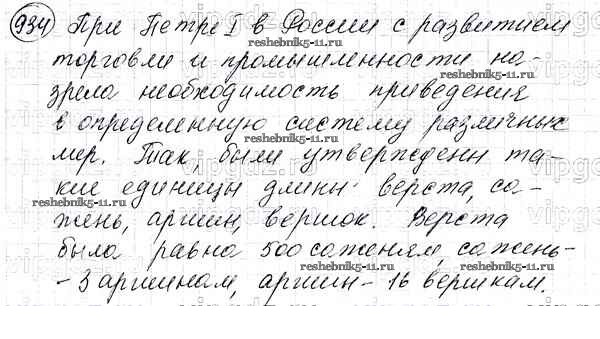 934 При Петре I в России с развитием
reshebnik5-11.ru
торговли и промышленности на-
reshebnik5-11.ru
зрела необходимость приведения
в определенную систему различных
reshebnik5-11.ru
мер. Так, были утверждены та-
кие единицы длины: верста, са-
reshebnik5-11.ru
жень, аршин, вершок. Верста
была равна 500 саженям, сажень-
reshebnik5-11.ru
- 3 аршинам, аршин - 16 вершкам.